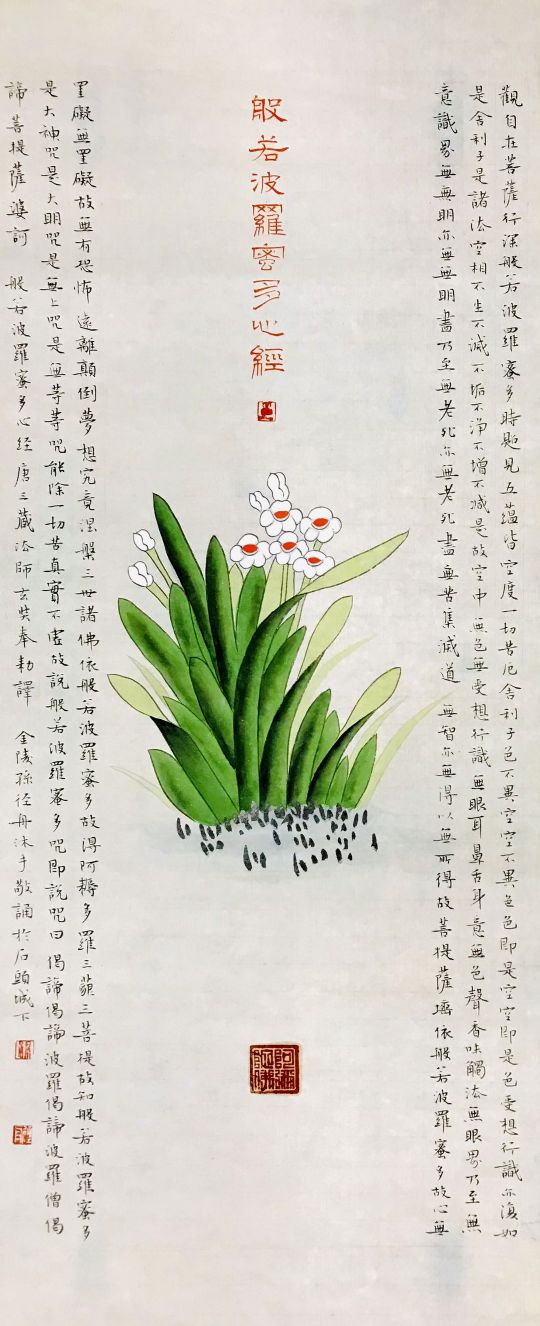 觀自在菩薩行深般若波羅蜜多時照見五蘊皆空度一切苦厄舍利子色不異空空不異色色即是空空即是色受想行識亦復如
是舍利子是諸法空相不生不滅不垢不净不增不減是故空中無色無受想行識無眼耳鼻舌身意無色聲香味觸法無眼界乃至無
意識界無無明亦無無明盡乃至無老死亦無老死盡無苦集滅道 無智亦無得以無所得故菩提薩埵依般若波羅蜜多故心無
般若波羅蜜多心經
罣礙無罣礙故無有恐怖遠離顛倒夢想究竟涅槃三世諸佛依般若波羅蜜多故得阿耨多羅三藐三菩提故知般若波羅蜜多
是大神咒是大明咒是無上咒是無等等咒能除一切苦真實不虛故說般若波羅蜜多咒即說咒曰 偈諦偈諦波羅偈諦波羅僧偈
諦菩提薩婆訶 般若波羅蜜多心经唐三藏法師玄奘奉勅譯 金陵孫径舟沐手敬誦於石頭城下